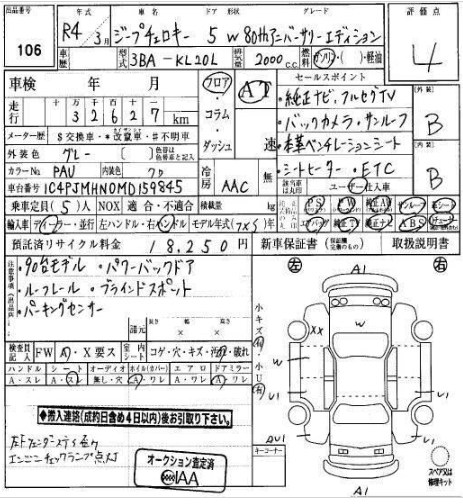 出品番号 年式 車名 ドア 形状 グレード 評価点
106 R4年3月 ジープチェロキー 5 W 80thアニバーサリーエディション 4
車歴 型式 3BA-KL20L 排気量 2000c.c. 燃料 ガソリン・( )・軽油
車検 年 月 フロア・コラム・ダッシュ AT 速 セールスポイント
走行 十万 万 千 百 十 一
3 2 6 2 7 km
・純正ナビ・フルセグTV
・バックカメラ・サンルーフ
・本革ベンチレーションシート
・シートヒーター・ETC
外装 B
内装 B
メーター歴 $交換車・*改竄車・#不明車
外装色 グレー ( ) 色替は色替車と記入
カラーNo. PAU 内装色 クロ 冷房 AAC 無
ユーザー・仕入車
車台番号 1C4PJMHN0MD159845 積載量 kg
乗車定員(5)人 NOX 適合・不適合
PS PW サンルーフ
輸入車 ディーラー・並行 左ハンドル・右ハンドル モデル年式( ) エアバッグ 純正ナビ ABS
預託済リサイクル料金 18,250円 新車保証書 取扱説明書
注意事項
・90台モデル・パワーバックドア
・ルーフレール・ブラインドスポット
・パーキングセンサー
左 右
A1
諸元 長さ 幅 高さ
× ×
小キズ有・小U有
検査員記入 FW A・X要ス 室内シート コゲ・穴・キズ・汚れ・破れ
ハンドル シート オーディオ ホイル(カバー) エアロ ドアミラー
A・スレ A・ス 無し・穴 A・ワレ A・ワレ A・ワレ
XX
W
W
U1
U1
AU1
A1
◆搬入連絡(成約日含め4日以内)後お引取り下さい。
キーコーナー
エンジンチェックランプ点灯
オークション査定済
IAA
スペア又は修理キット